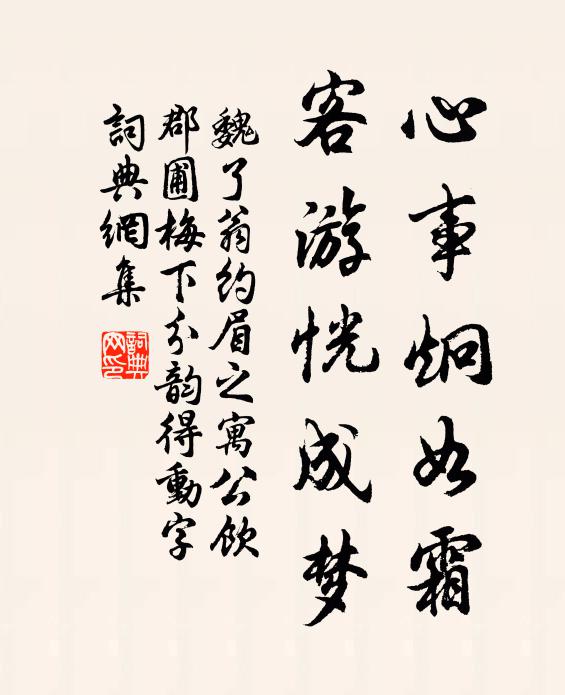 心事炯如霜
客游恍成梦
魏了翁约眉之寓公饮
郡圃梅下分韵得動字
詞典網集
詞典網印